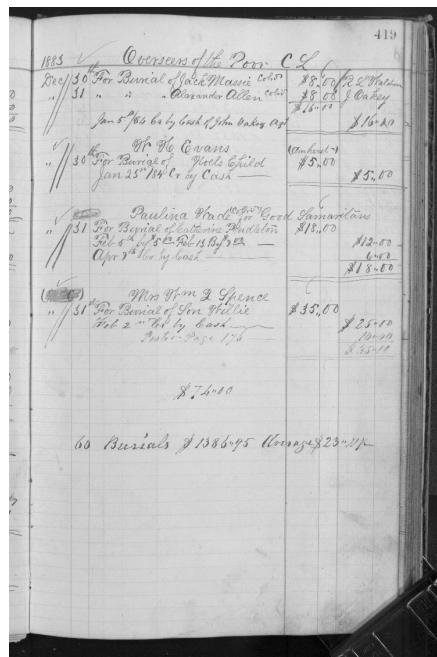 419
1883 Overseers of the Poor C L
Dec 30th For Burial of Jack Massie Cold $8.00
" 31 " " " Alexander Allen Cold $8.00 J Oakey
$16.00
Jan 5th/84 Cr by Cash of John Oakey Agt $16.00
W H Evans (Amherst)
" 30th For Burial of Child $5.00
Jan 25th 1884 Cr by Cash $5.00
Paulina Wade for Good Samaritans
" 31 For Burial of Catherine Pendleton $18.00
Feb 5th by 5.00 Feb 13 By $12.00
Apr Cr by Cash 6.00
$18.00
Mrs Wm Spence
" 31st For Burial of Son Willie $35.00
Feb 2nd Cr by Cash $25.00
Page 176 10.00
$35.00
$74.00
60 Burials $1386.95 Average $23.11